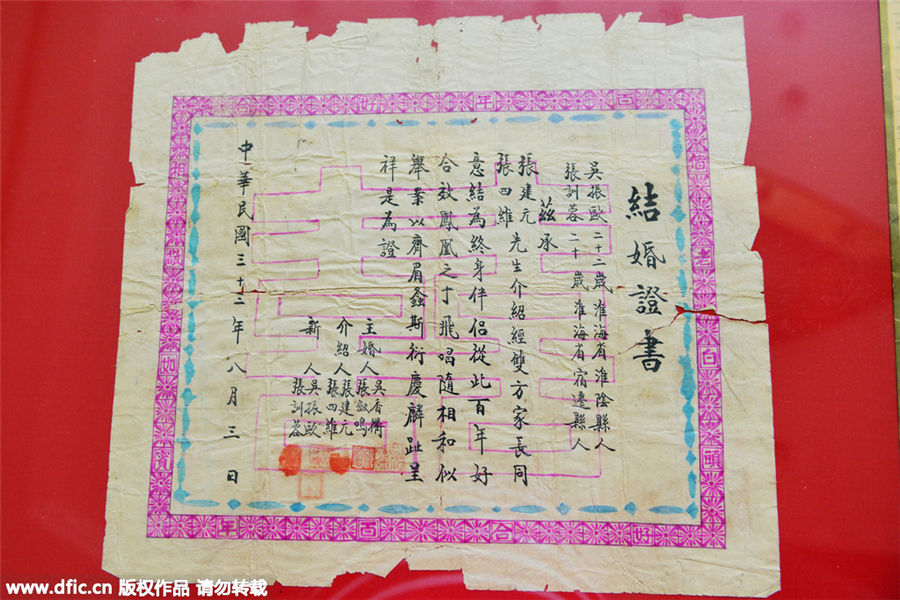 結婚證書
吳振歐 二十二歲 淮海省淮陰縣人
張訓蓉 二十歲 淮海省宿遷縣人
茲承
張建元
張四維
先生介紹經雙方家長同
意結為終身伴侶從此百年好
合效鳳凰之于飛唱隨相和似
舉案以齊眉螽斯衍慶麟趾呈
祥是為證
主婚人
吳香
張
鳴
介紹人
張建元
張四維
新人
吳振歐
張訓蓉
中華民國三十二年八月三日
百年好合
偕老白頭好
合百年
相敬如賓
www.dfic.cn 版权作品 请勿转载